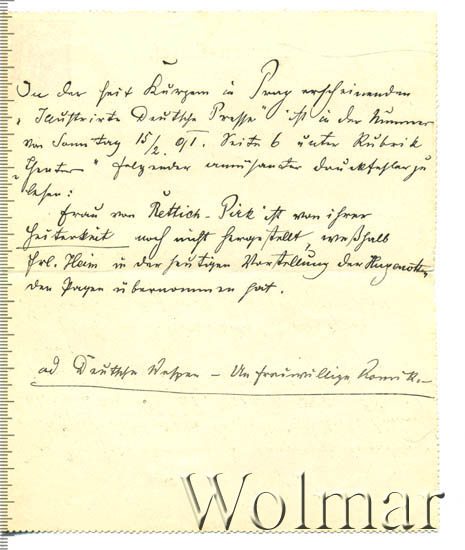 In der seit Kurzem in Prag erscheinenden
"Illustrirte Deutsche Presse" ist in der Nummer
von Sonntag 15/2. 01. Seite 6 unter Rubrik
"Theater" folgender amüsanter Druckfehler zu
lesen:
Frau von Rettich-Pirk ist von ihrer
Heiterkeit noch nicht hergestellt, weßhalb
Frl. Hein in der heutigen Vorstellung der Hugenotten
den Pagen übernommen hat.
ad Deutsche Wespen – Unfreiwillige Komik.–
Wolmar